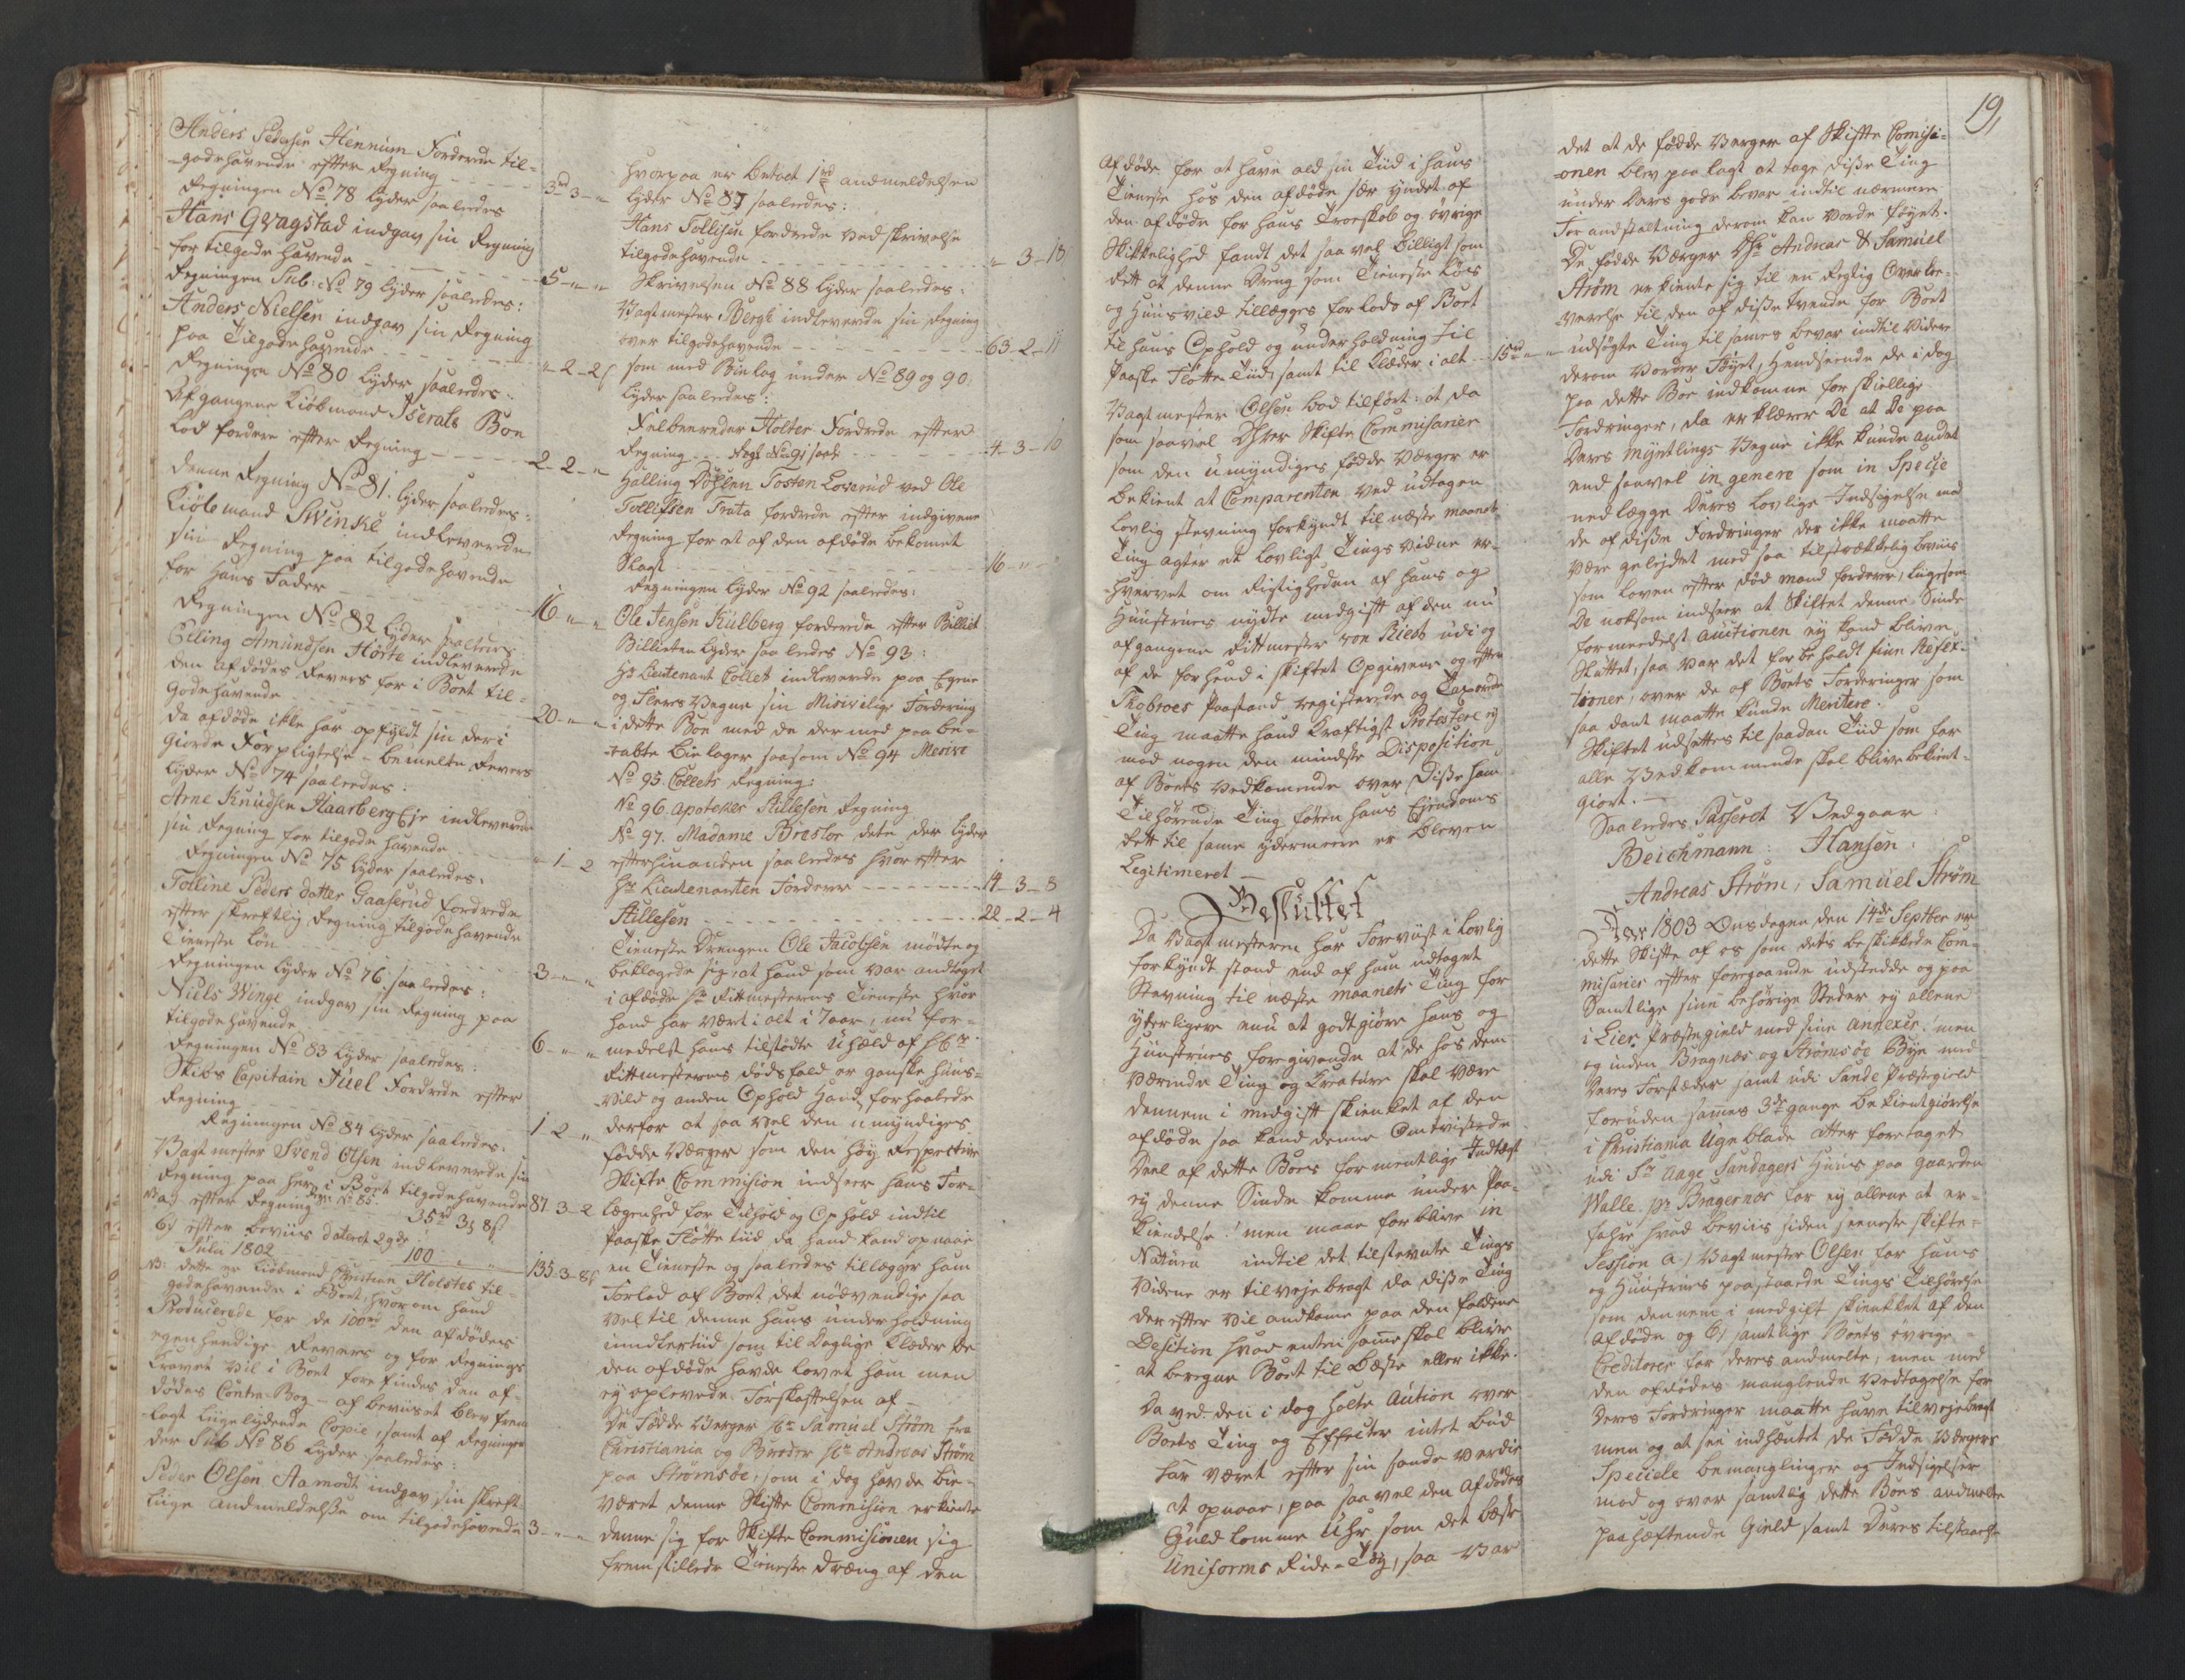 Anders Pedersen Hennum Forderede til-
godehavende efter Regning - - - 3rd 3 - "
Regningen No 78 lyder saaledes
Hans Gvagstad indgav sin Regning
for tilgode havende - - - 5 - " - "
Regningen Sub: No 79 lyder saaledes:
Anders Nielsen indgav sin Regning
paa Tilgodehavende - - - " - 2 - 2
Regningen No 80 lyder saaledes:
Afgangene Kiøbmand Iseraels Boe
lod fordre efter Regning - - - 2 - 2 - "
denne Regning No 81. lyder saaledes:
Kiøbmand Swinke indleverede
sin Regning paa tilgodehavende
for hans Fader - - - 16 - " - "
Regningen No 82 lyder saaledes
Elling Amundsen Hørte indleverede
den afdødes Revers for i Boet til-
godehavende - - - 20 - " - "
da afdøde ikke har opfyldt sin deri
giorde Forpligtelse - bemelte Revers
lyder No 74 saaledes:
Arne Knudsen Haarberg Eje indleverede
sin Regning for tilgode havende - - - " - 1 - 2
Regningen No 75 lyder saaledes:
Tolline Peders datter Gaaserud fordrede
efter skreftlig Regning tilgodehavende
Tieneste Løn - - - 3 - " - "
Regningen lyder No 76 saaledes:
Niels Winge indgav sin Regning paa
tilgodehavende - - - 6 - " - "
Regningen No 83 lyder saaledes:
Skibs Capitain Juel Fordrede efter
Regning - - - 1 - 2 - "
Regningen No 84 lyder saaledes:
Vagtmester Svend Olsen indleverede sin
Regning paa hans i Boet tilgodehavende 87 - 3 - 2
a) efter Regning No 85 35rd 3 8s
b) efter beviis dateret 29de
Julii 1802 100 " " 135 - 3 - 8s
NB: dette er Kiøbmand Christian Holstes til-
godehavende i Boet, hvorom hand
Producerede for de 100rd den afdødes
egenhendige Revers og for Regnings
Kravet vil i Boet forefindes den af-
dødes Contra-Bog - af beviiset blev frem
lagt liigelydende Copie, samt af Regningen
der Sub No 86 lyder saaledes:
Peder Olsen Aamodt indgav sin skreft-
liige andmeldelse om tilgodehavende 3 - " - "
hvorpaa er betalt 1rd andmeldelsen
lyder No 87 saaledes:
Hans Tollisen fordrede ved skrivelse
tilgodehavende - - - " - 3 - 18
Skrivelsen No 88 lyder saaledes:
Vagtmester Bergh indleverede sin Regning
over tilgodehavende - - - 63 - 2 - 11
som med Bielag under No 89 og 90:
lyder saaledes:
Feldbereder Holter Fordrede efter
Regning - - - No 91 - - - 4 - 3 - 10
Halling Døhlen Tosten Loverud ved Ole
Tollefsen Trata fordrede efter indgivene
Regning for et af den afdøde bekomet
- - - 16 - " -
Regningen lyder No 92 saaledes:
Ole Jensen Kulberg forderede efter Billiet
Billieten lyder saaledes No 93:
Hr Lieutenant Collet indleverede paa Egene
og Fleres Vegne sin Missivelige Fordering
i dette Boe med de dermed paabe-
raabte Bielager saasom No 94 Missive
No 95. Collets Regning:
No 96. Apoteker Stillesen Regning
No 97. Madame Børstor dets der lyder
efterhinanden saaledes hvorefter
Hr Lieutenanten Fordrer - - - 14 - 3 - 8
Stillesen - - - 22 - 2 - 4
Tieneste Drengen Ole Jacobsen mødte og
beklagede sig, at hand som var andtaget
i afdøde Hr Ritmesterens Tieneste hvor
hand har vært i alt i 7 aar, nu for-
medelst hans tilstødte Uheld af Hr
Ritmesterens dødsfald er ganske huus-
vild og anden Ophold Hand forhaabede
derfor at saavel den umyndiges
fødde Værger som den høy Respective
Skifte Commision indseer hans For-
legenhed for Tilhold og Ophold indtil
Paaske Fløttetiid da hand kand opnaae
en Tieneste og saaledes tillægger ham
Forlod af Boet det nødvendige saa
vel til denne hans underholdning
imidlertiid som til daglige Klæder de
den afdøde havde lovet ham men
ey oplevede Forskaffelsen af -
De Fødde Værger Hr Samuel Strøm fra
Christiania og Broder Hr Andreas Strøm
paa Strømsøe, som i dag havde bie-
været denne Skifte Commision erkiente
denne sig for Skifte Commisionen sig
fremstillede Tieneste dreng af den
19,
Afdøde for at have ald sin Tiid i hans
Tieneste hos den afdøde sær yndet af
den afdøde for hans Troeskab og øvrige
Skikkelighed fandt det saa vel billigt som
rett at denne Dreng som Tieneste løes
og huusvild tillægges forlods af Boet
til hans Ophold og underholdning til
Paaske Fløtte-Tiid, samt til Klæder i alt 15rd " "
Vagtmester Olsen bad tilført: at da
som saavel Dhrr Skifte Commisarier
som den umyndiges fødde Værger er
bekient at Comparenten ved udtagen
lovlig stevning forkyndt til næste maaneds
Ting agter et lovligt Tings vidne er-
hvervet om Rigtigheden af hans og
Huustrues nydte medgift af den nu
afgangene Ritmester von Kieb udi og
af de forhend i skiftet Opgivene og efter
Skobroes Paastand registrerede og Taxerede
Ting maatte hand kraftigst Protestere ej
mod nogen den mindste Disposition
af Boets Vedkomende over Disse ham
Tilhørende Ting føren hans Ejendoms
Rett til same ydermere er bleven
Legitimeret -
Besluttet
Da Vagtmesteren har Foreviist i lovlig
forkyndt stand end af ham udtaget
Stevning til næste maaneds Ting for
yderligere end at godtgiøre hans og
Huustrues foregivende at de hos dem
Værende Ting og Creature skal være
dennem i medgift skienket af den
afdøde saa kand denne Omtvistede
Deel af dette Boes formentlige Indtægt
ej denne Sinde komme under Paa-
kiendelse! men maae forblive in
Natura indtil det tilstevnte Tings
Vidne er tilvejebragt da disse Ting
derefter vil andkome paa den faldene
Desition hvad enten samme skal blive
at beregne Boet til Beste eller ikke.
Da ved den i dag holte Aution over
Boets Ting og Effecter intet bud
har været efter sin sande værdie
at opnaae, paa saavel den Afdødes
Guld lomme Uhr som det beste
Uniforms Ride-Tøy, saa var
det at de fødde Værger af Skifte Comisi-
onen blev paalagt at tage disse Ting
under deres gode bevar indtil nærmere
Forandstaltning derom kan vorde føyet.
De fødde Værger Dhr Andreas & Samuel
Strøm erkiente sig til en Rigtig Overle-
verelse til den af disse tvende for Boet
udsøgte Ting til sammes bevar indtil Videre
derom vorder Føyet, Henseende de i dag
paa dette Boe indkomne forskiellige
Fordringer, da erklærer De at de paa
Deres Myntlings Vegne ikke kunde andet
end saavel in genere som in Specie
nedlegge Deres lovlige Indsigelse mod
de af disse Fordringer der ikke maatte
være gelejdet med saa tilstrækkelig beviis
som loven efter død mand fordrer, liigesom
De noksom indseer at Skiftet denne Sinde
formedelst Auctionen ey kand blive
sluttet, saa var det forbeholdt siine Reflex-
tioner, over de af Boets Forderinger som
saadant maatte kunde Meritere.
Skiftet udsættes til saadan Tiid som for
alle Vedkommende skal blive bekient-
giort. -
Saaledes Passeret Vedgaar
Beichmann: Hansen:
Andreas Strøm, Samuel Strøm
Aar 1803 Onsdagen den 14de Septber er
dette Skifte af os som dets beskikkede Com-
misarier efter foregaaende udstedde og paa
Samtlige siine behørige Steder ey allene
i Lier Præstegield med siine Annexer! men
og inden Bragnæs og Strømsøe Bye med
Deres Forstæder samt udi Sande Præstegield
foruden sammes 3de gange bekientgiørelse
i Christiania Ugeblade atter foretaget
udi Sr Aage Sandagers Huus paa Gaarden
Walle pr Bragernæs for ey allene at er-
fahre hvad beviis siden seeneste skifte-
Session a) Vagtmester Olsen for hans
og Huustrues paastaaede Tings Tilhørelse
som dennem i medgift skienket af den
Afdøde og b) samtlige Boets øvrige
Creditorer for deres andmelte, men med
den afdødes manglende Vedtagelse for
Deres Fordringer maatte have tilvejebragt
men og at see indhentet de Fødde Værgers
Specielle bemanglinger og Indsigelser
mod og over samtlig dette Boes andmelte
paahæftende Gield samt Deres tilstaaelse